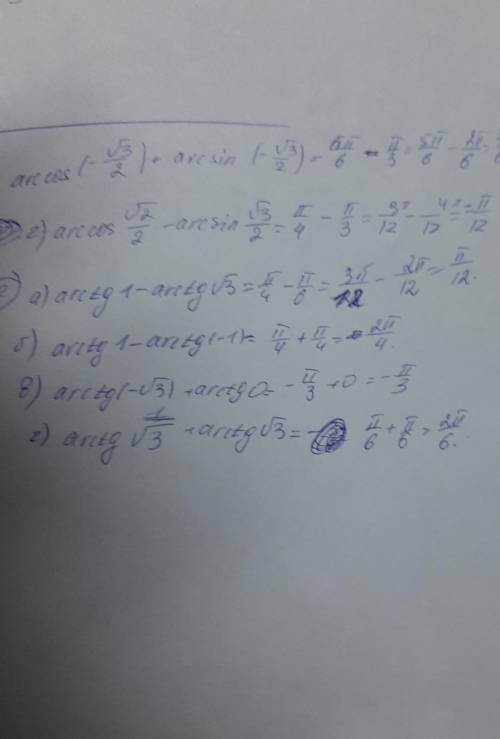 arccos(-√3/2) + arcsin(-√3/2) = 5π/6 - π/3 = 5π/6 - 2π/6 =
г) arccos √2/2 - arcsin √3/2 = π/4 - π/3 = 3π/12 - 4π/12 = -π/12
а) arctg 1 - arctg √3 = π/4 - π/6 = 3π/12 - 2π/12 = π/12.
б) arctg 1 - arctg(-1) = π/4 + π/4 = 2π/4.
в) arctg(-√3) + arctg 0 = -π/3 + 0 = -π/3
г) arctg 1/√3 + arctg √3 = π/6 + π/6 = 2π/6.